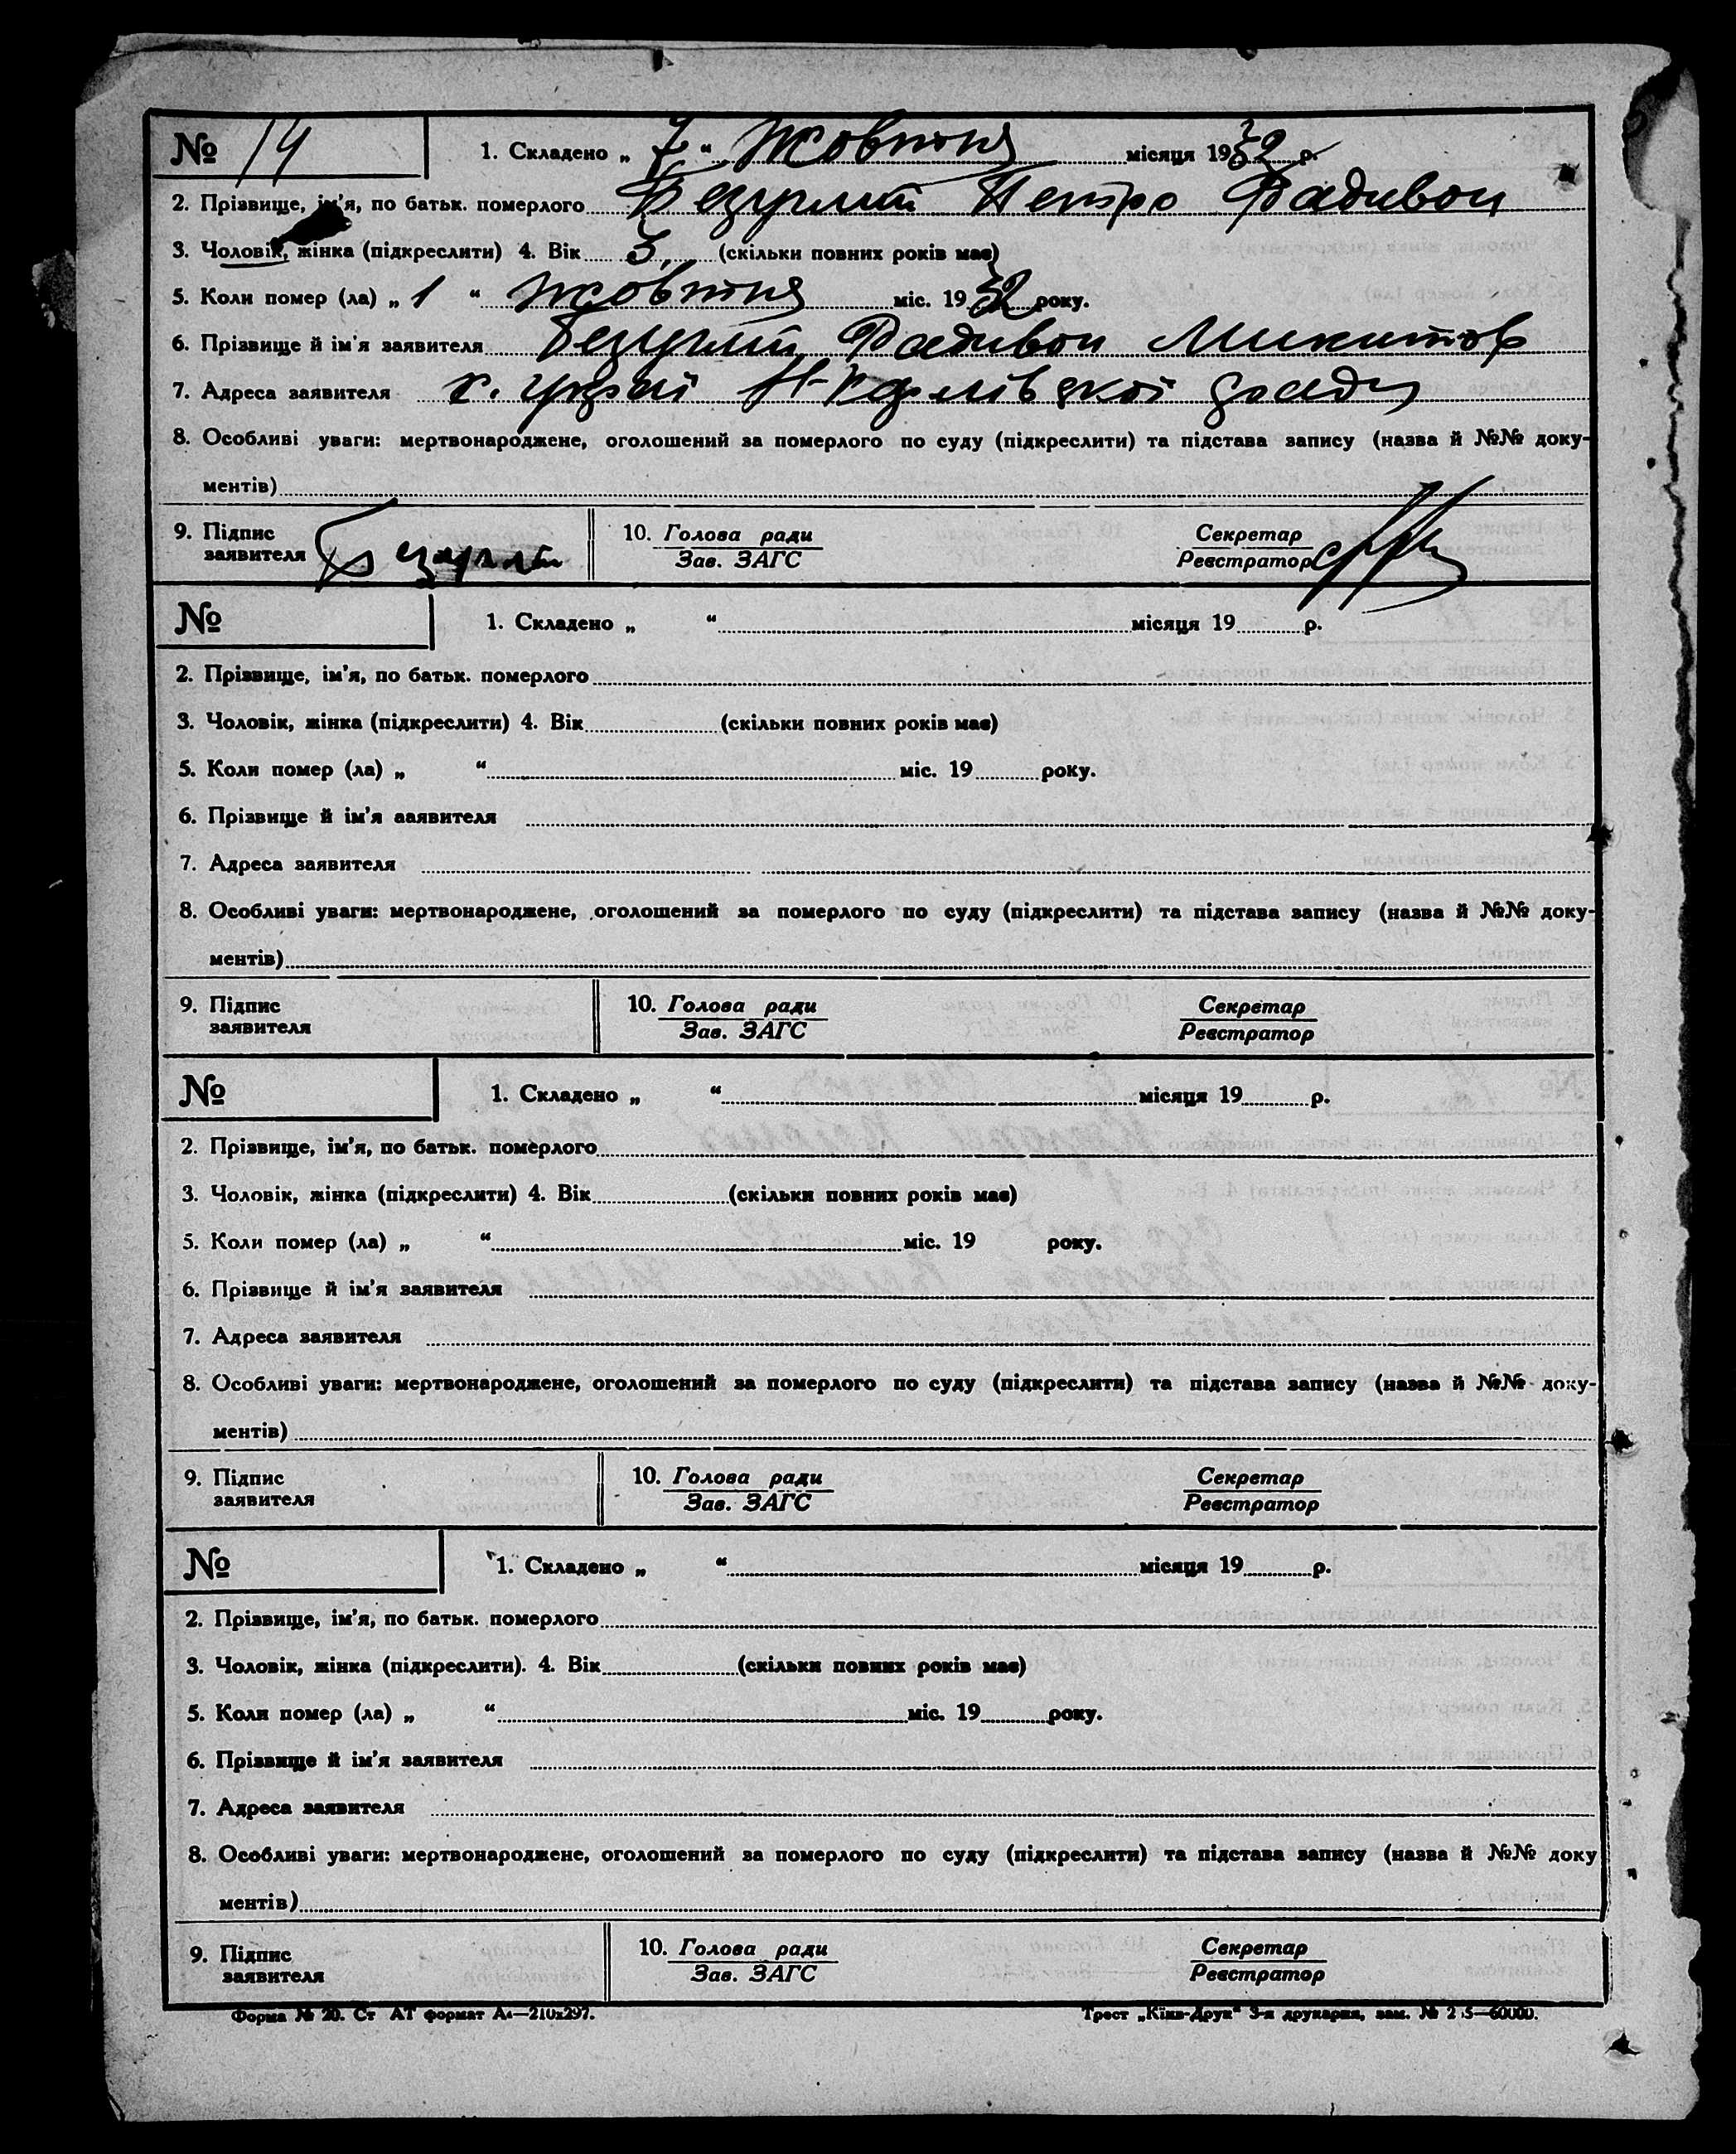 № 14
1. Складено „ 7 “ Жовтня місяця 1932 р.
2. Прізвище, ім'я, по батьк. померлого Петро Радивон
3. Чоловік, жінка (підкреслити) 4. Вік 3, (скільки повних років має)
5. Коли помер (ла) „ 1 “ жовтня міс. 1932 року.
6. Прізвище й ім'я заявителя Радивон Микитов
7. Адреса заявителя х.
8. Особливі уваги: мертвонароджене, оголошений за померлого по суду (підкреслити) та підстава запису (назва й №№ доку-
ментів)
9. Підпис 10. Голова ради Секретар
заявителя Зав. ЗАГС Реєстратор
№
1. Складено „ “ місяця 19 р.
2. Прізвище, ім'я, по батьк. померлого
3. Чоловік, жінка (підкреслити) 4. Вік (скільки повних років має)
5. Коли помер (ла) „ “ міс. 19 року.
6. Прізвище й ім'я ааявителя
7. Адреса заявителя
8. Особливі уваги: мертвонароджене, оголошений за померлого по суду (підкреслити) та підстава запису (назва й №№ доку-
ментів)
9. Підпис 10. Голова ради Секретар
заявителя Зав. ЗАГС Реєстратор
№
1. Складено „ “ місяця 19 р.
2. Прізвище, ім'я, по батьк. померлого
3. Чоловік, жінка (підкреслити) 4. Вік (скільки повних років має)
5. Коли помер (ла) „ “ міс. 19 року.
6. Прізвище й ім'я заявителя
7. Адреса заявителя
8. Особливі уваги: мертвонароджене, оголошений за померлого по суду (підкреслити) та підстава запису (назва й №№ доку-
ментів)
9. Підпис 10. Голова ради Секретар
заявителя Зав. ЗАГС Реєстратор
№
1. Складено „ “ місяця 19 р.
2. Прізвище, ім'я, по батьк. померлого
3. Чоловік, жінка (підкреслити). 4. Вік (скільки повних років має)
5. Коли помер (ла) „ “ міс. 19 року.
6. Прізвище й ім'я заявителя
7. Адреса заявителя
8. Особливі уваги: мертвонароджене, оголошений за померлого по суду (підкреслити) та підстава запису (назва й №№ доку
ментів)
9. Підпис 10. Голова ради Секретар
заявителя Зав. ЗАГС Реєстратор
Форма № 20. Ст АТ формат А4—210x297. Трест „Київ-Друк“ 3-я друкарня, зам. №